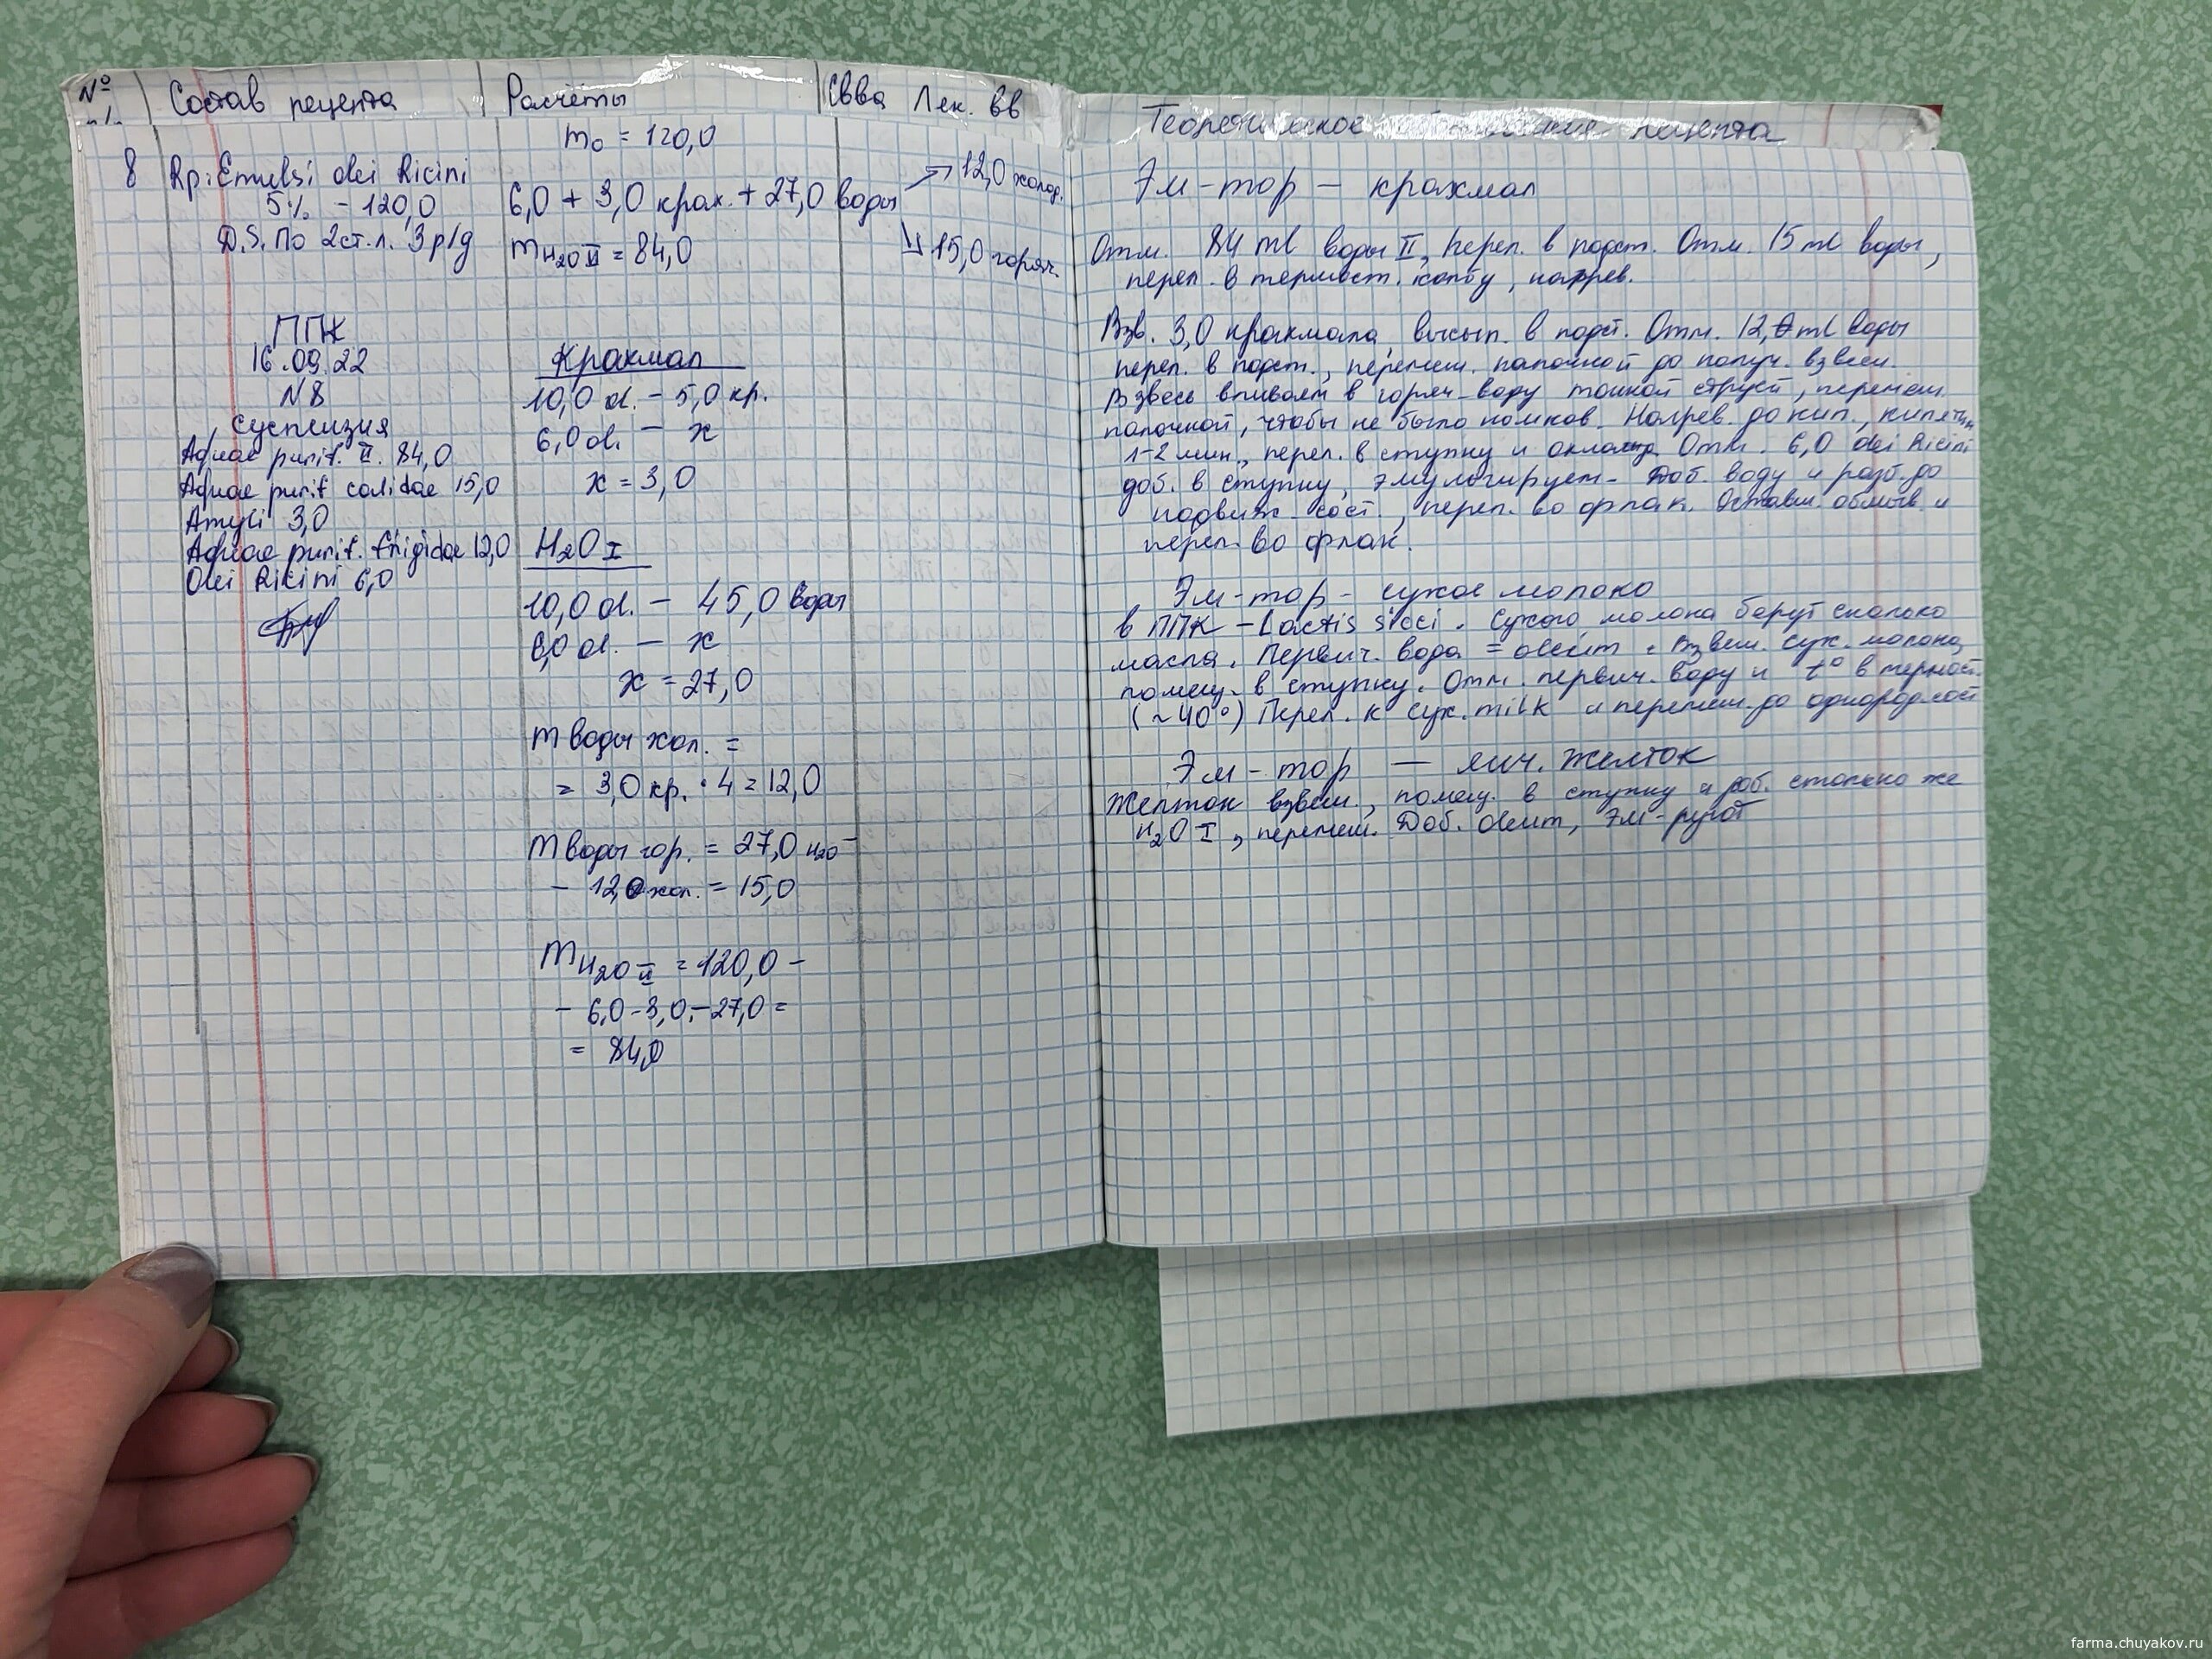 № п/п
Состав рецепта
Расчёты
Св-ва Лек. вв
Теоретическое рецепта
8
Rp: Emulsi olei Ricini
5% - 120,0
D.S. По 2 ст.л. 3 р/д
ППК
16.09.22
N8
суспензия
Aquae purif. II. 84,0
Aquae purif calidae 15,0
Amyli 3,0
Aquae purif. frigidae 12,0
Olei Ricini 6,0
m₀ = 120,0
6,0 + 3,0 крах. + 27,0 воды
12,0 холод.
15,0 горяч.
m H₂O II = 84,0
Крахмал
10,0 ol. - 5,0 кр.
6,0 ol. - x
x = 3,0
H₂O I
10,0 ol. - 45,0 воды
6,0 ol. - x
x = 27,0
m воды хол. =
= 3,0 кр. · 4 = 12,0
m воды гор. = 27,0 H₂O -
- 12,0 хол. = 15,0
m H₂O II = 120,0 -
- 6,0 - 3,0 - 27,0 =
= 84,0
Эм-тор - крахмал
Отм. 84 ml воды II, перел. в подст. Отм. 15 ml воды,
перел. в термост. колбу, нагрев.
Взв. 3,0 крахмала, высып. в подст. Отм. 12,0 ml воды
перел. в подст., перемеш. палочкой до получ. взвеси.
Взвесь вливаем в горяч. воду тонкой струёй, перемеш.
палочкой, чтобы не было комков. Нагрев. до кип., кипятим
1-2 мин., перел. в ступку и охлажд. Отм. 6,0 olei Ricini
доб. в ступку, эмульгируем. Доб. воду и разб. до
подвиж. сост., перел. во флак. Оставш. обмыв. и
перел. во флак.
Эм-тор - сухое молоко
в ППК - Lactis sicci. Сухого молока берут сколько
масла. Первич. вода = oleum. Взвеш. сух. молоко,
помещ. в ступку. Отм. первич. воду и t° в термост.
(~40°) Перел. к сух. milk и перемеш. до однородности
Эм-тор - яич. желток
Желток взвеш., помещ. в ступку и доб. столько же
H₂O I, перемеш. Доб. oleum, эм-руют
farma.chuyakov.ru